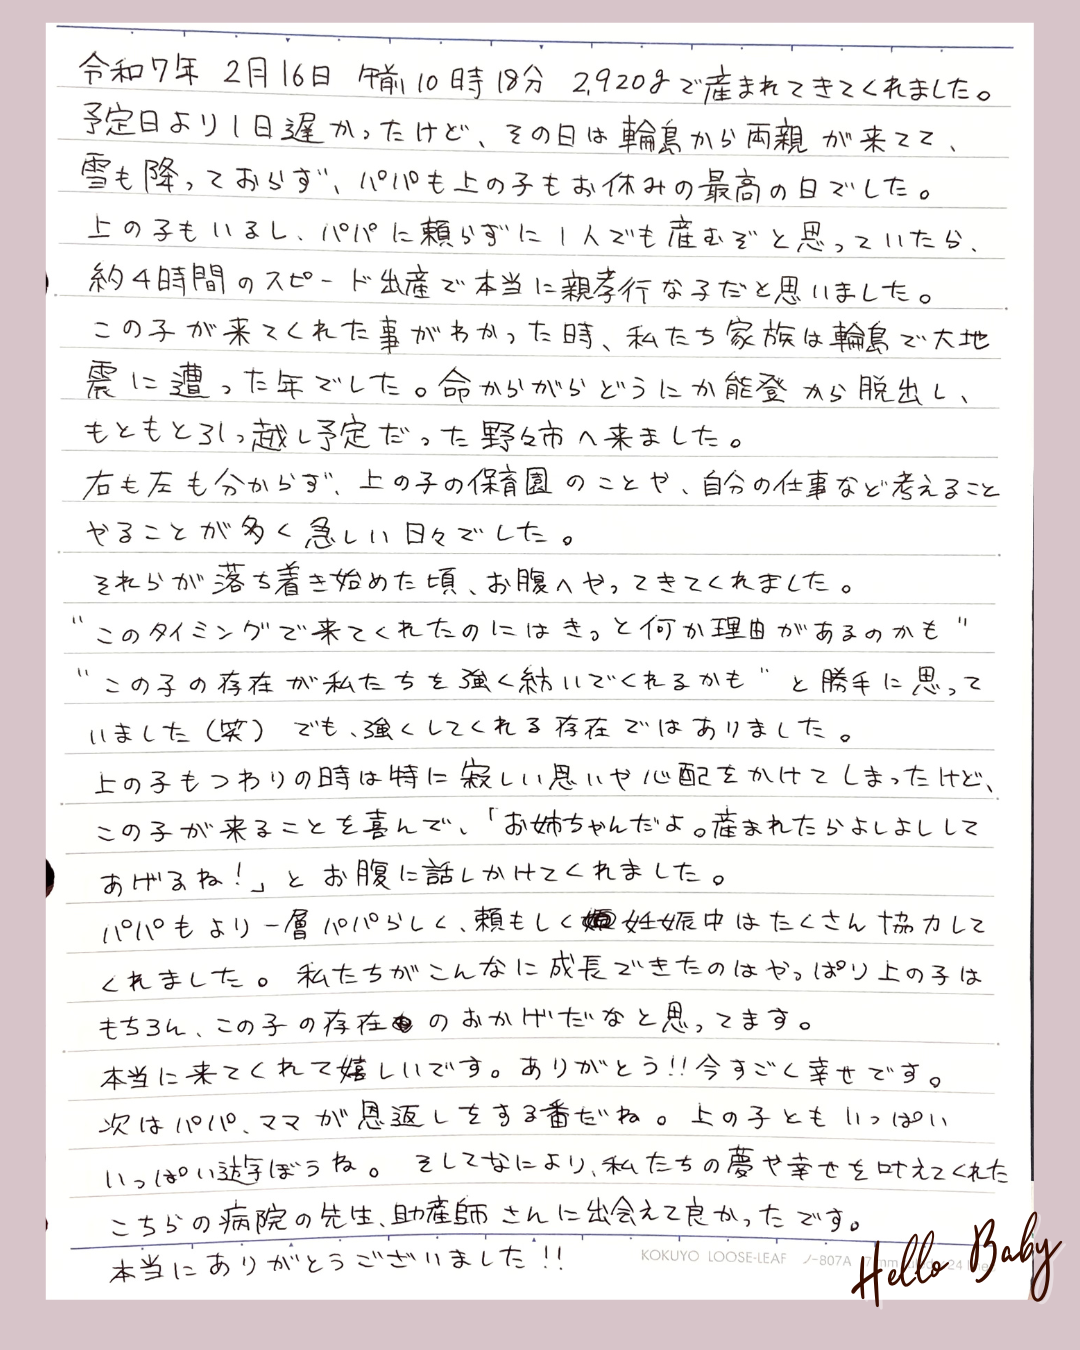 令和7年 2月16日 午前10時18分 2,920gで産まれてきてくれました。
予定日より1日遅かったけど、その日は輪島から両親が来てて、
雪も降っておらず、パパも上の子もお休みの最高の日でした。
上の子もいるし、パパに頼らずに1人でも産むぞと思っていたら、
約4時間のスピード出産で本当に親孝行な子だと思いました。
この子が来てくれた事がわかった時、私たち家族は輪島で大地
震に遭った年でした。命からがらどうにか能登から脱出し、
もともと引っ越し予定だった野々市へ来ました。
右も左も分からず、上の子の保育園のことや、自分の仕事など考えること
やることが多く急しい日々でした。
それらが落ち着き始めた頃、お腹へやってきてくれました。
"このタイミングで来てくれたのにはきっと何か理由があるのかも"
"この子の存在が私たちを強く紡いでくれるかも"と勝手に思って
いました(笑) でも、強くしてくれる存在ではありました。
上の子もつわりの時は特に寂しい思いや心配をかけてしまったけど、
この子が来ることを喜んで、「お姉ちゃんだよ。産まれたらよしよしして
あげるね!」とお腹に話しかけてくれました。
パパもより一層パパらしく、頼もしく妊娠中はたくさん協力して
くれました。私たちがこんなに成長できたのはやっぱり上の子は
もちろん、この子の存在のおかげだなと思ってます。
本当に来てくれて嬉しいです。ありがとう!!今すごく幸せです。
次はパパ、ママが恩返しをする番だね。上の子ともいっぱい
いっぱい遊ぼうね。そしてなにより、私たちの夢や幸せを叶えてくれた
こちらの病院の先生、助産師さんに出会えて良かったです。
本当にありがとうございました!!
KOKUYO LOOSE-LEAF ノ-807A
Hello Baby